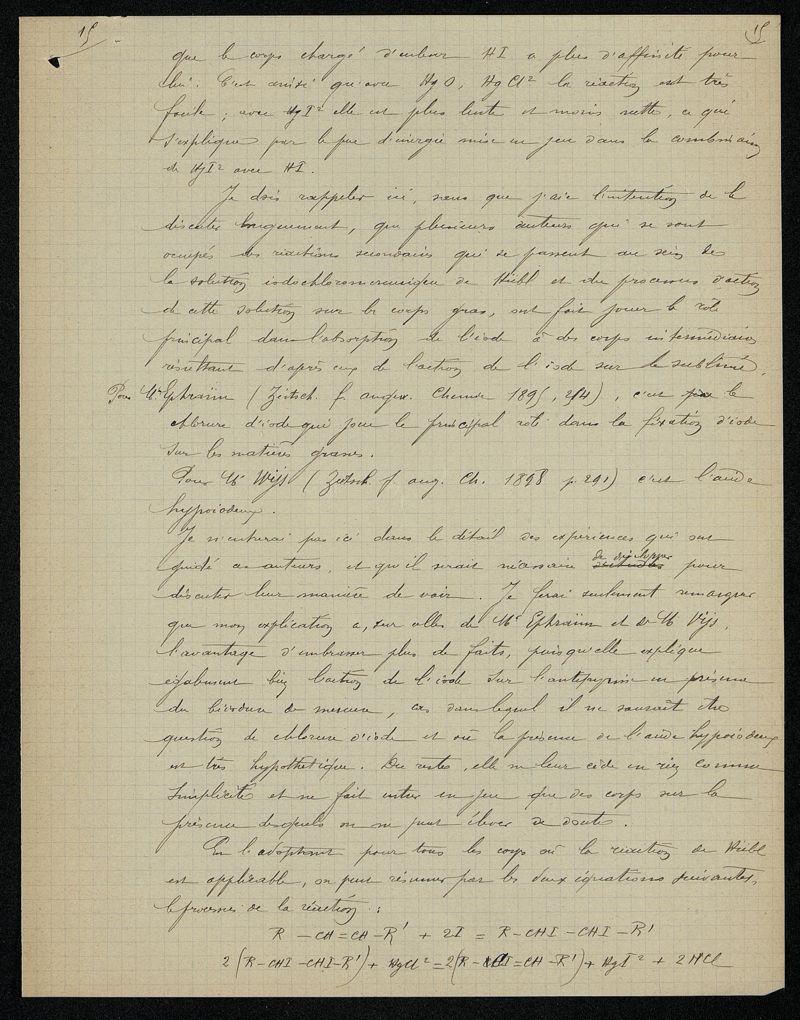 15 15
que le corps chargé d'enlever HI a plus d'affinité pour
lui. C'est ainsi qu'avec HgO, HgCl² la réaction est très
facile ; avec HgI² elle est plus lente et moins nette, ce qui
s'explique par le peu d'énergie mise en jeu dans la combinaison
de HgI² avec HI.
Je dois rappeler ici, sans que j'aie l'intention de le
discuter longuement, que plusieurs auteurs qui se sont
occupés des réactions secondaires qui se passent au sein de
la solution iodochloromercurique de Hübl et du processus d'action
de cette solution sur les corps gras, ont fait jouer le rôle
principal dans l'absorption de l'iode à des corps intermédiaires
résultant d'après eux de l'action de l'iode sur le sublimé.
Pour Mr Ephraïm (Zeitsch. f. angew. Chemie 1895, 254), c'est le
chlorure d'iode qui joue le principal rôle dans la fixation d'iode
sur les matières grasses.
Pour Mr Wijs (Zeitsch. f. ang. Ch. 1898 p. 291) c'est l'acide
hypoiodeux.
Je n'entrerai pas ici dans le détail des expériences qui ont
guidé ces auteurs, et qu'il serait nécessaire de développer pour
discuter leur manière de voir. Je ferai seulement remarquer
que mon explication a, sur celles de Mr Ephraïm et de Mr Vijs,
l'avantage d'embrasser plus de faits, puisqu'elle explique
également bien l'action de l'iode sur l'antipyrine en présence
du biiodure de mercure, cas dans lequel il ne saurait être
question de chlorure d'iode et où la présence de l'acide hypoiodeux
est très hypothétique. Du reste, elle ne leur cède en rien comme
simplicité et ne fait entrer en jeu que des corps sur la
présence desquels on ne peut élever de doute.
En l'adoptant pour tous les corps où la réaction de Hübl
est applicable, on peut résumer par les deux équations suivantes,
le processus de la réaction :
R - CH = CH - R' + 2I = R - CHI - CHI - R'
2 (R - CHI - CHI - R') + HgCl² = 2 (R - CI = CH - R') + HgI² + 2HCl